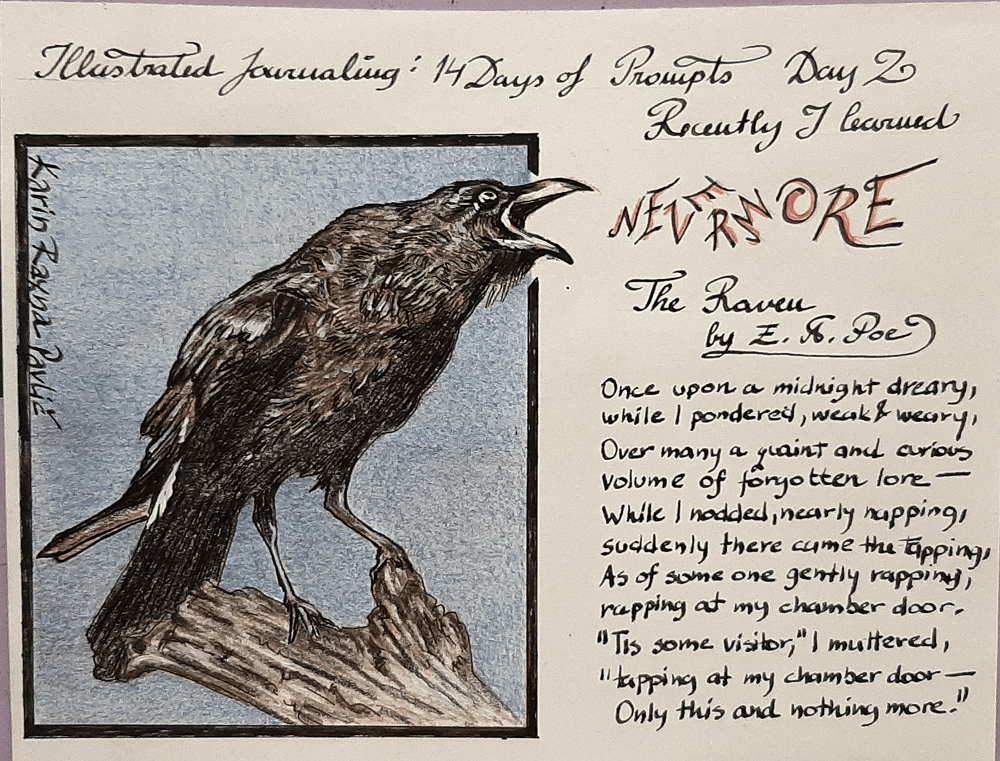 Illustrated Journaling: 14 Days of Prompts Day 2
Recently I learned
NEVERMORE
The Raven
by E. A. Poe
Once upon a midnight dreary,
while I pondered, weak & weary,
Over many a quaint and curious
volume of forgotten lore —
While I nodded, nearly napping,
suddenly there came the tapping,
As of some one gently rapping,
rapping at my chamber door.
"Tis some visitor," I muttered,
"tapping at my chamber door —
Only this and nothing more."
Karin Rayna Pavlič